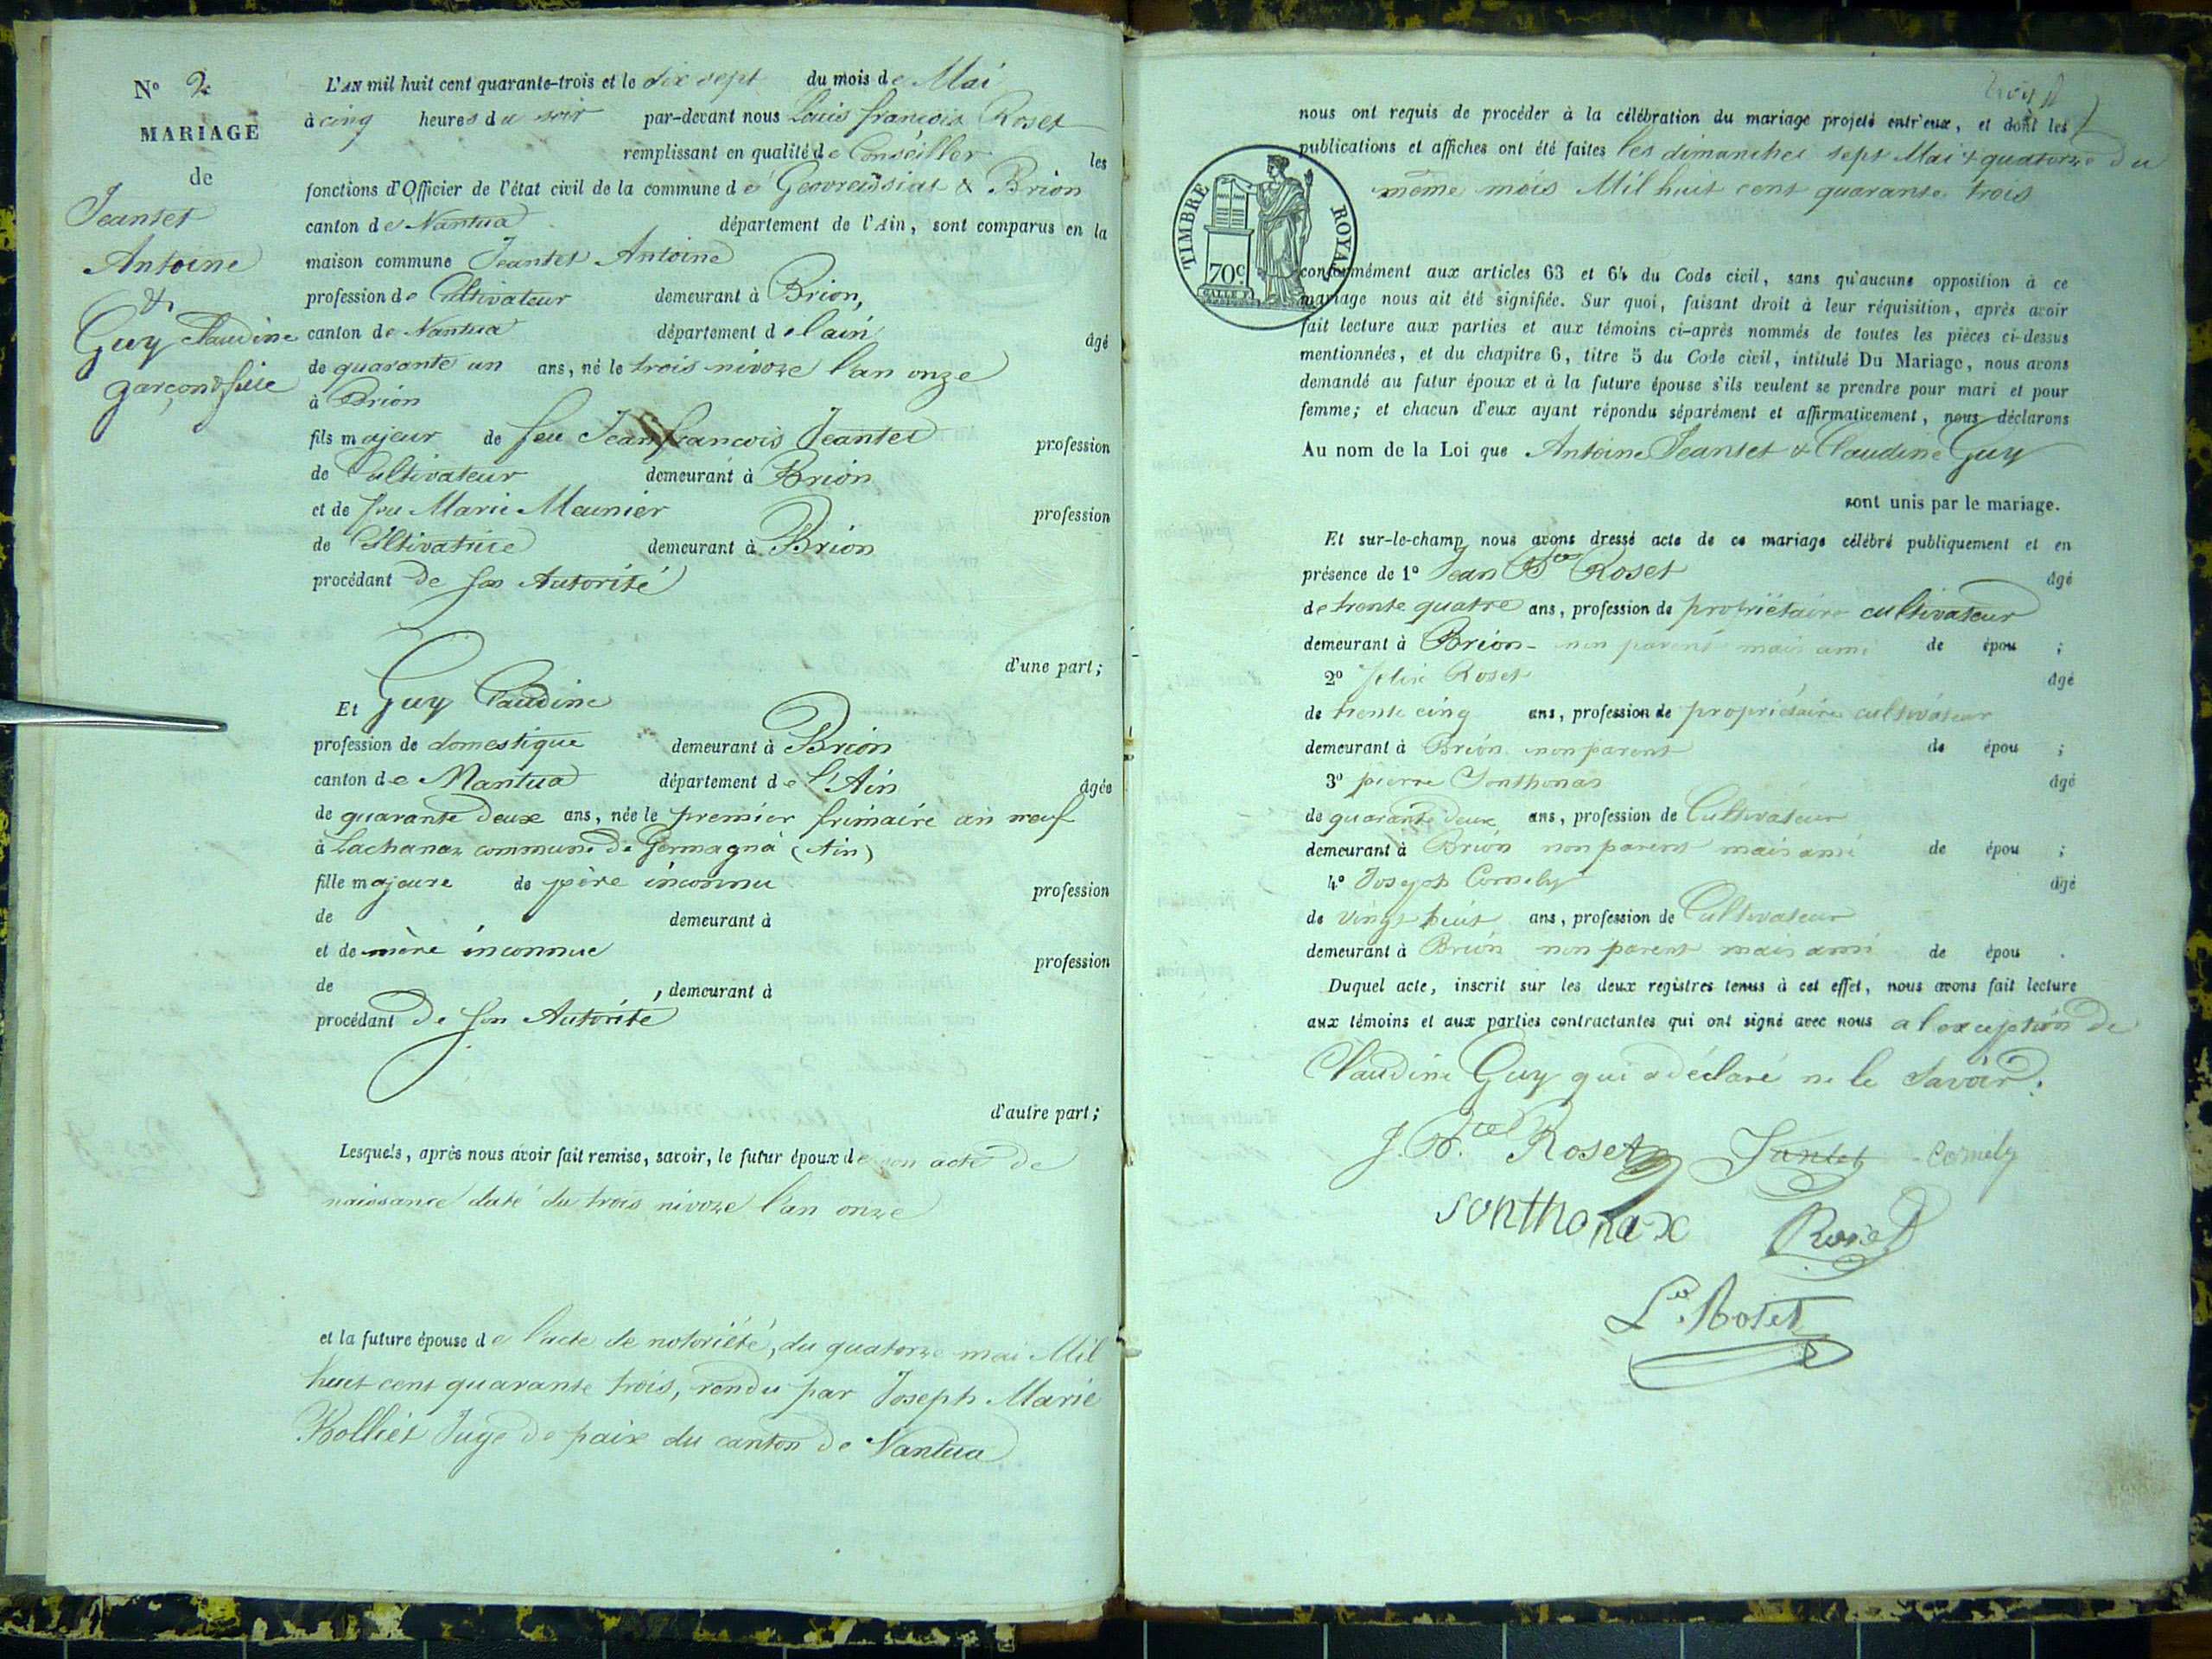 N° 2
MARIAGE
de
Jeantet
Antoine
&
Guy Claudine
garçon & fille
L'AN mil huit cent quarante-trois et le dix sept du mois de Mai
à cinq heures du soir par-devant nous Louis françois Roset
remplissant en qualité de Conseiller les
fonctions d'Officier de l'état civil de la commune de Geovreissiat & Brion
canton de Nantua département de l'Ain, sont comparus en la
maison commune Jeantet Antoine
profession de Cultivateur demeurant à Brion,
canton de Nantua département de lain âgé
de quarante un ans, né le trois nivoze l'an onze
à Brion
fils majeur de feu Jean françois Jeantet profession
de Cultivateur demeurant à Brion
et de feu Marie Meunier profession
de Cultivatrice demeurant à Brion
procédant de son Autorité
d'une part;
Et Guy Claudine
profession de domestique demeurant à Brion
canton de Nantua département de l'Ain âgée
de quarante deux ans, née le premier frimaire an neuf
à Lachanaz commune de Germagna (Ain)
fille majeure de père inconnu profession
de demeurant à
et de mère inconnue profession
de , demeurant à
procédant de son Autorité
d'autre part;
Lesquels, après nous avoir fait remise, savoir, le futur époux de son acte de
naissance daté du trois nivoze l'an onze
et la future épouse de l'acte de notoriété, du quatorze mai Mil
huit cent quarante trois, rendu par Joseph Marie
Rolliet Juge de paix du canton de Nantua
nous ont requis de procéder à la célébration du mariage projeté entr'eux, et dont les
publications et affiches ont été faites les dimanches sept Mai & quatorze du
même mois Mil huit cent quarante trois
TIMBRE ROYAL
70c
conformément aux articles 63 et 64 du Code civil, sans qu'aucune opposition à ce
mariage nous ait été signifiée. Sur quoi, faisant droit à leur réquisition, après avoir
fait lecture aux parties et aux témoins ci-après nommés de toutes les pièces ci-dessus
mentionnées, et du chapitre 6, titre 5 du Code civil, intitulé Du Mariage, nous avons
demandé au futur époux et à la future épouse s'ils veulent se prendre pour mari et pour
femme; et chacun d'eux ayant répondu séparément et affirmativement, nous déclarons
Au nom de la Loi que Antoine Jeantet & Claudine Guy
sont unis par le mariage.
Et sur-le-champ nous avons dressé acte de ce mariage célébré publiquement et en
présence de 1° Jean Bte Roset âgé
de trente quatre ans, profession de propriétaire cultivateur
demeurant à Brion - non parent mais ami de épou ;
2° felix Roset âgé
de trente cinq ans, profession de propriétaire cultivateur
demeurant à Brion non parent de épou ;
3° pierre Sonthonas âgé
de quarante deux ans, profession de Cultivateur
demeurant à Brion non parent mais ami de épou ;
4° Joseph Comely âgé
de vingt huit ans, profession de Cultivateur
demeurant à Brion non parent mais ami de épou .
Duquel acte, inscrit sur les deux registres tenus à cet effet, nous avons fait lecture
aux témoins et aux parties contractantes qui ont signé avec nous a l'exception de
Claudine Guy qui a déclaré ne le Savoir.
J. Bte Roset Jantet Comely
Sonthonax Roset
Ls. Roset